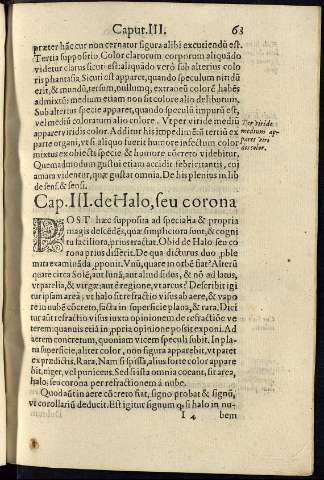 Caput. III. 63
præter hãc cur non cernatur figura alibi excutiendũ est.
Tertia suppositio Color clarorum corporum aliquãdo
videtur clarus sicut est: aliquãdo verò sub alterius colo
ris phantasia. Sicuti est apparet, quando speculum nitidũ
erit, & mundũ, tersum, nullumq; extraneũ colorẽ habẽs
admixtũ: medium etiam non sit colore alio delibutum.
Sub alterius specie apparet, quando speculũ impurũ est,
vel mediũ coloratum alio colore. Vt per viride mediũ
apparet viridis color. Additur his impedimẽtũ tertiũ ex
parte organi, vt si aliquo fuerit humore infectum color
mixtus ex obiectis specie & humore cõcreto videbitur.
Quemadmodum gustui etiam accidit febricitantis, cui
amara videntur, quæ gustat omnia. De his plenius in lib
de sens. & sensi.
Per viride
medium ap-
paret viri-
dis color.
Cap. III. de Halo, seu corona
POST hæc supposita ad specialia & propria
magis descẽdẽs, quæ simpliciora sunt, & cogni
tu faciliora, prius tractat. Ob id de Halo seu co
rona prius disserit. De qua dicturus duo
examinãda Vnũ, quare in orbẽ fiat? Alterũ
quare circa Solẽ, aut lunã, aut aliud sidus, & nõ ad latus,
vt parelia, & virgæ: aut è regione, vt arcus? Describit igi
tur ipsam areã, vt halo sit refractio visus ab aere, & vapo
re in nubẽ cõcreto, facta in superficie plana, & rara. Dici
tur aũt refractio visus iuxta opinionem de refractiõe ve
terem: quanuis etiã in opinione possit exponi. Ad
aerem concretum, quoniam vicem speculi subit. In pla
na superficie, aliter color, non figura apparebit, vt patet
ex prædictis. Rara, Nam si spissa, alius forte color appare
bit, niger, vel puniceus. Sed si ista omnia coeant, fit area,
halo, seu corona per refractionem à nube.
Quod aũt in aere cõcreto fiat, signo probat & signũ,
vt corollariũ deducit. Est igitur signum q; si halo in nu-
I 4 bem